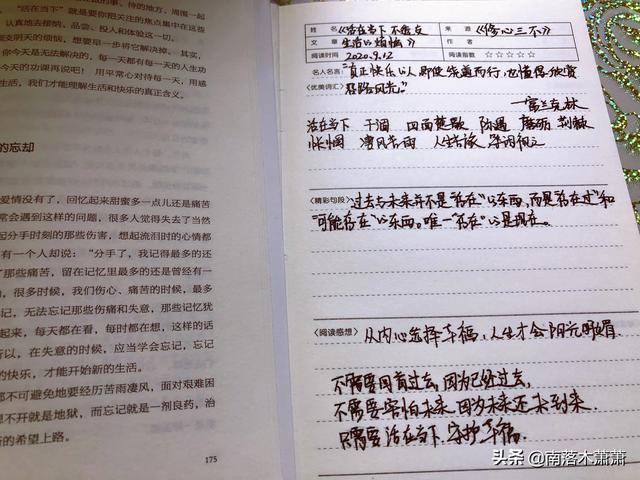 事、待的地方、周围一起
“活在当下”就是要你把关注的焦点集中在这些
认真地接纳、品尝、投入和体验这一切。
受阴天的烦恼，想要早一步将它解决掉。其实，
你今天是无法解决的，每一天都有每一天的人生功
今天的功课再说吧！用平常心对待每一天，用感
生活，我们才能理解生活和快乐的真正含义。
的忘却
爱情没有了，回忆起来甜蜜多一点儿还是痛苦
常会遇到这样的问题，很多人觉得失去了当然
起分手时刻的那些伤害，想起流泪时的心情都
有一个人却说：“分手了，我记得最多的还
了那些痛苦，留在记忆里最多的还是曾经有一
的，很多时候，我们伤心、痛苦的时候，最多
记，无法忘记那些伤痛和失意，那些记忆犹
起来，每天都在看，每时都在想，这样的话
所以，在失意的时候，应当学会忘记，忘记
的快乐，才能开始新的生活。
都不可避免地要经历苦雨凄风，面对艰难困
想不开就是地狱，而忘记就是一剂良药，治
新的希望上路。
175
姓名 《活在当下 不透支 来源 《修心三不》
文章 生活的烦恼》 作者
阅读时间 2020.9.12 阅读指数 ☆☆☆☆☆
名人名言： “真正快乐的人，即使绕道而行，也懂得欣赏
〈优美词汇〉 沿路风光。”
——富兰克林
活在当下 干涸 四面楚歌 际遇 磨砺 荆棘
惆怅 凄风苦雨 人生苦旅
〈精彩句段〉 过去与未来并不是“存在”的东西，而是“存在过”和
“可能存在”的东西。唯一“存在”的是现在。
〈阅读感想〉 从内心选择幸福，人生才会阳光明媚。
不需要回首过去，因为已经过去，
不需要害怕未来，因为未来还未到来，
只需要活在当下，守护幸福。
头条 @南落木萧萧